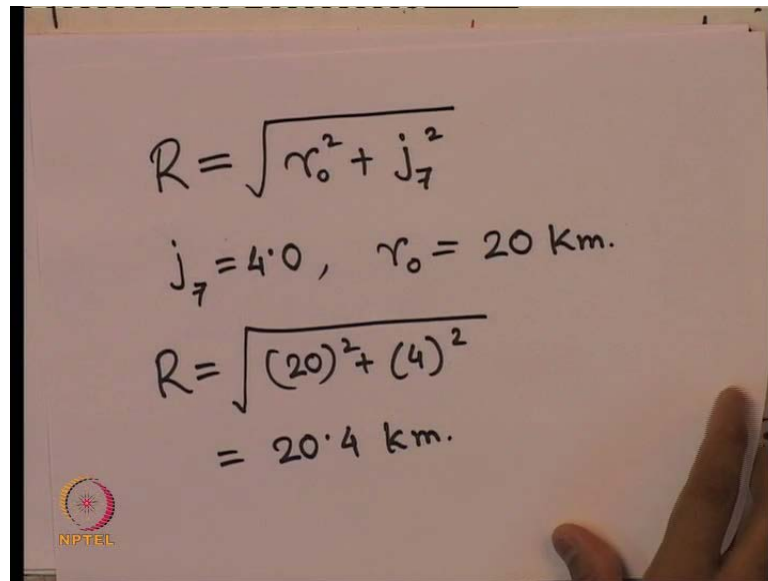 R = √(r₀² + j₇²)
j₇ = 4·0, r₀ = 20 Km.
R = √((20)² + (4)²)
= 20·4 km.
NPTEL